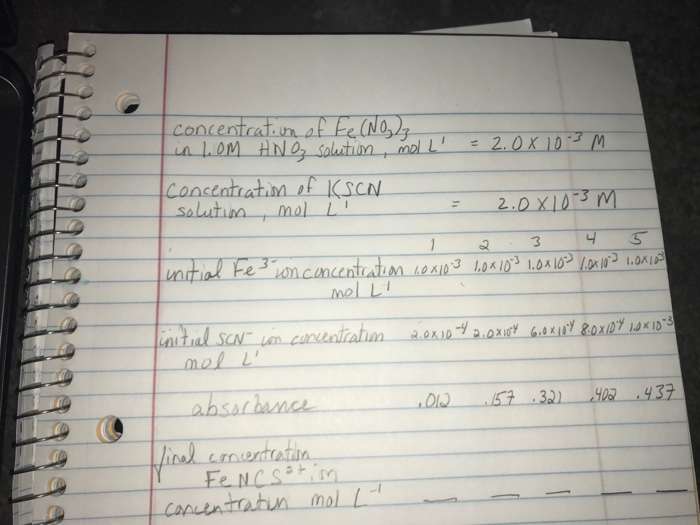 concentration of Fe(NO3)3
in 1.0M HNO3 solution, mol L' = 2.0 X 10-3 M
Concentration of KSCN
solution, mol L' = 2.0 X10-3 M
1 2 3 4 5
initial Fe3- ion concentration 1.0x10-3 1.0x10-3 1.0x10-3 1.0x10-3 1.0x10-3
mol L-1
initial SCN- ion concentration 2.0x10-4 2.0x10-4 6.0x10-4 8.0x10-4 1.0x10-3
mol L'
absorbance .012 .157 .321 .402 .437
final concentration
FeNCS2+ ion
concentratun mol L-1 — — — — —